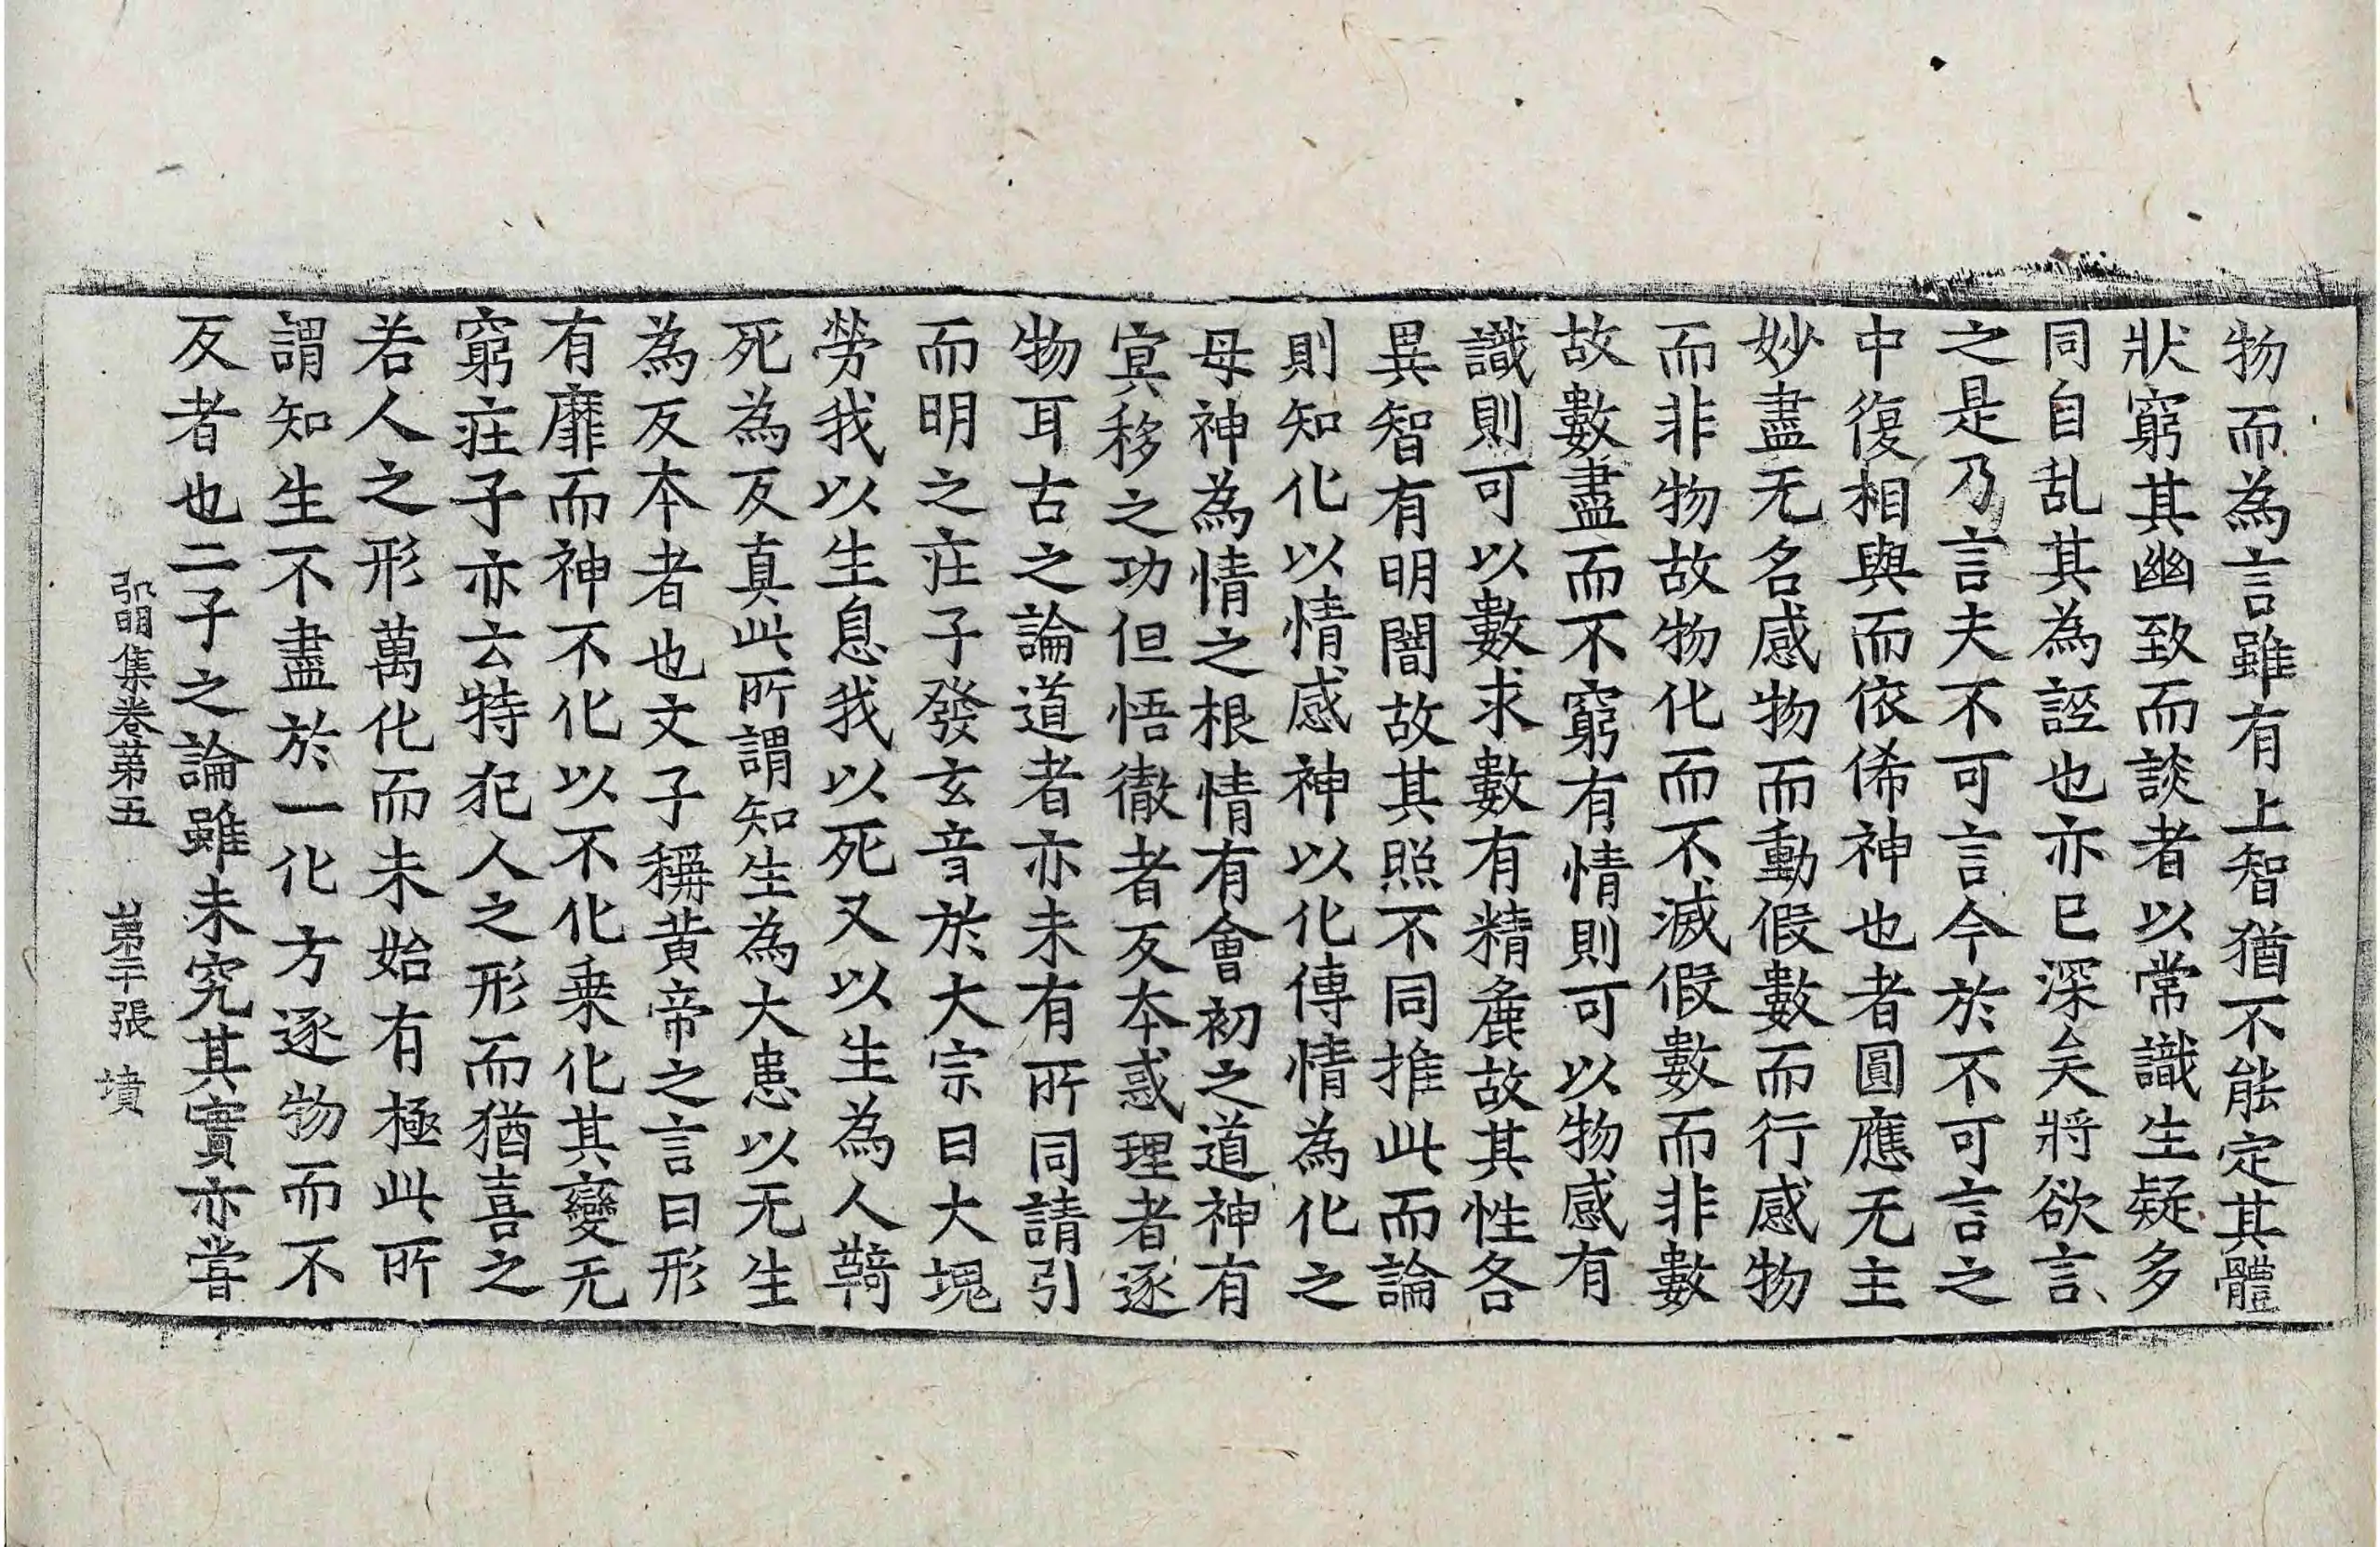 物而為言雖有上智猶不能定其體
狀窮其幽致而談者以常識生疑多
同自乱其為誣也亦已深矣將欲言
之是乃言夫不可言今於不可言之
中復相與而依俙神也者圓應无主
妙盡无名感物而動假數而行感物
而非物故物化而不滅假數而非數
故數盡而不窮有情則可以物感有
識則可以數求數有精麁故其性各
異智有明闇故其照不同推此而論
則知化以情感神以化傳情為化之
母神為情之根情有會初之道神有
冥移之功但悟徹者反本惑理者逐
物耳古之論道者亦未有所同請引
而明之庄子發玄音於大宗曰大塊
勞我以生息我以死又以生為人鞿
死為反真此所謂知生為大患以无生
為反本者也文子稱黄帝之言曰形
有靡而神不化以不化乗化其變无
窮庄子亦云特犯人之形而猶喜之
若人之形萬化而未始有極此所
謂知生不盡於一化方逐物而不
反者也二子之論雖未究其實亦甞
弘明集卷第五 第二十張 墳